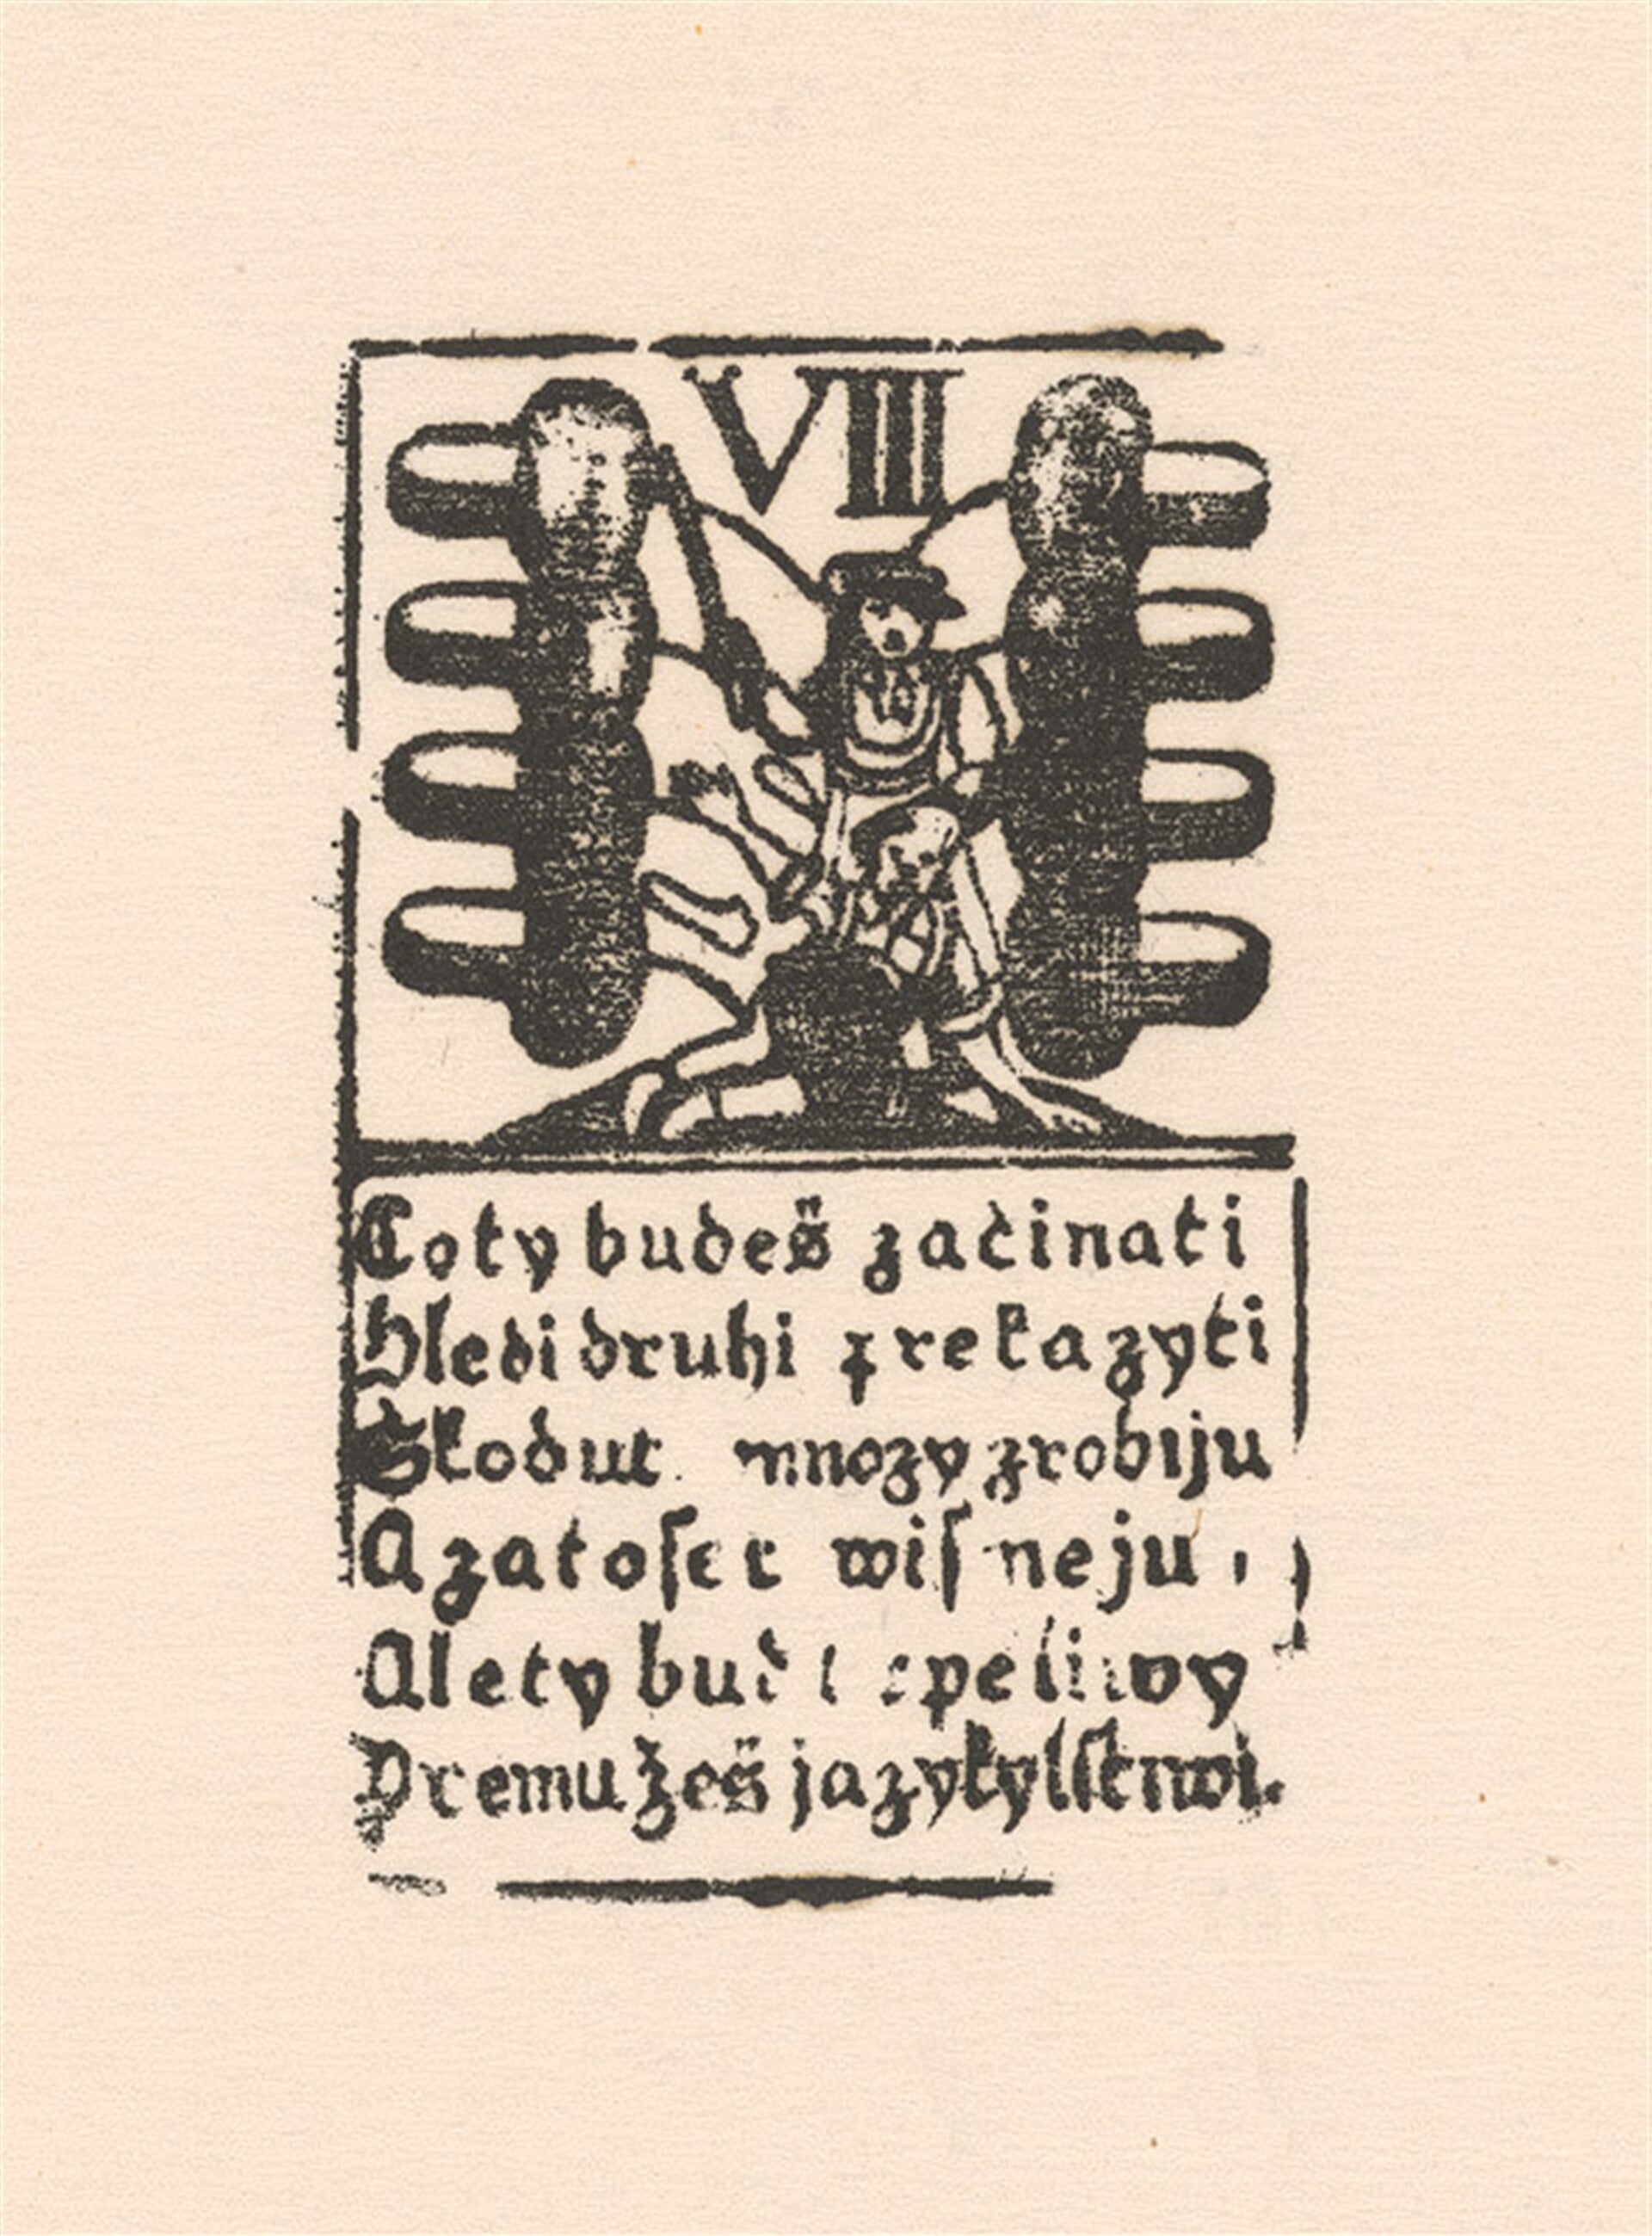 VIII
Coty budeš začinati
Hledi druhi prekazyti
Skodut mnozy zrobiju
A zatoser wiſ neju
Alety buď
Premužeš jazyk